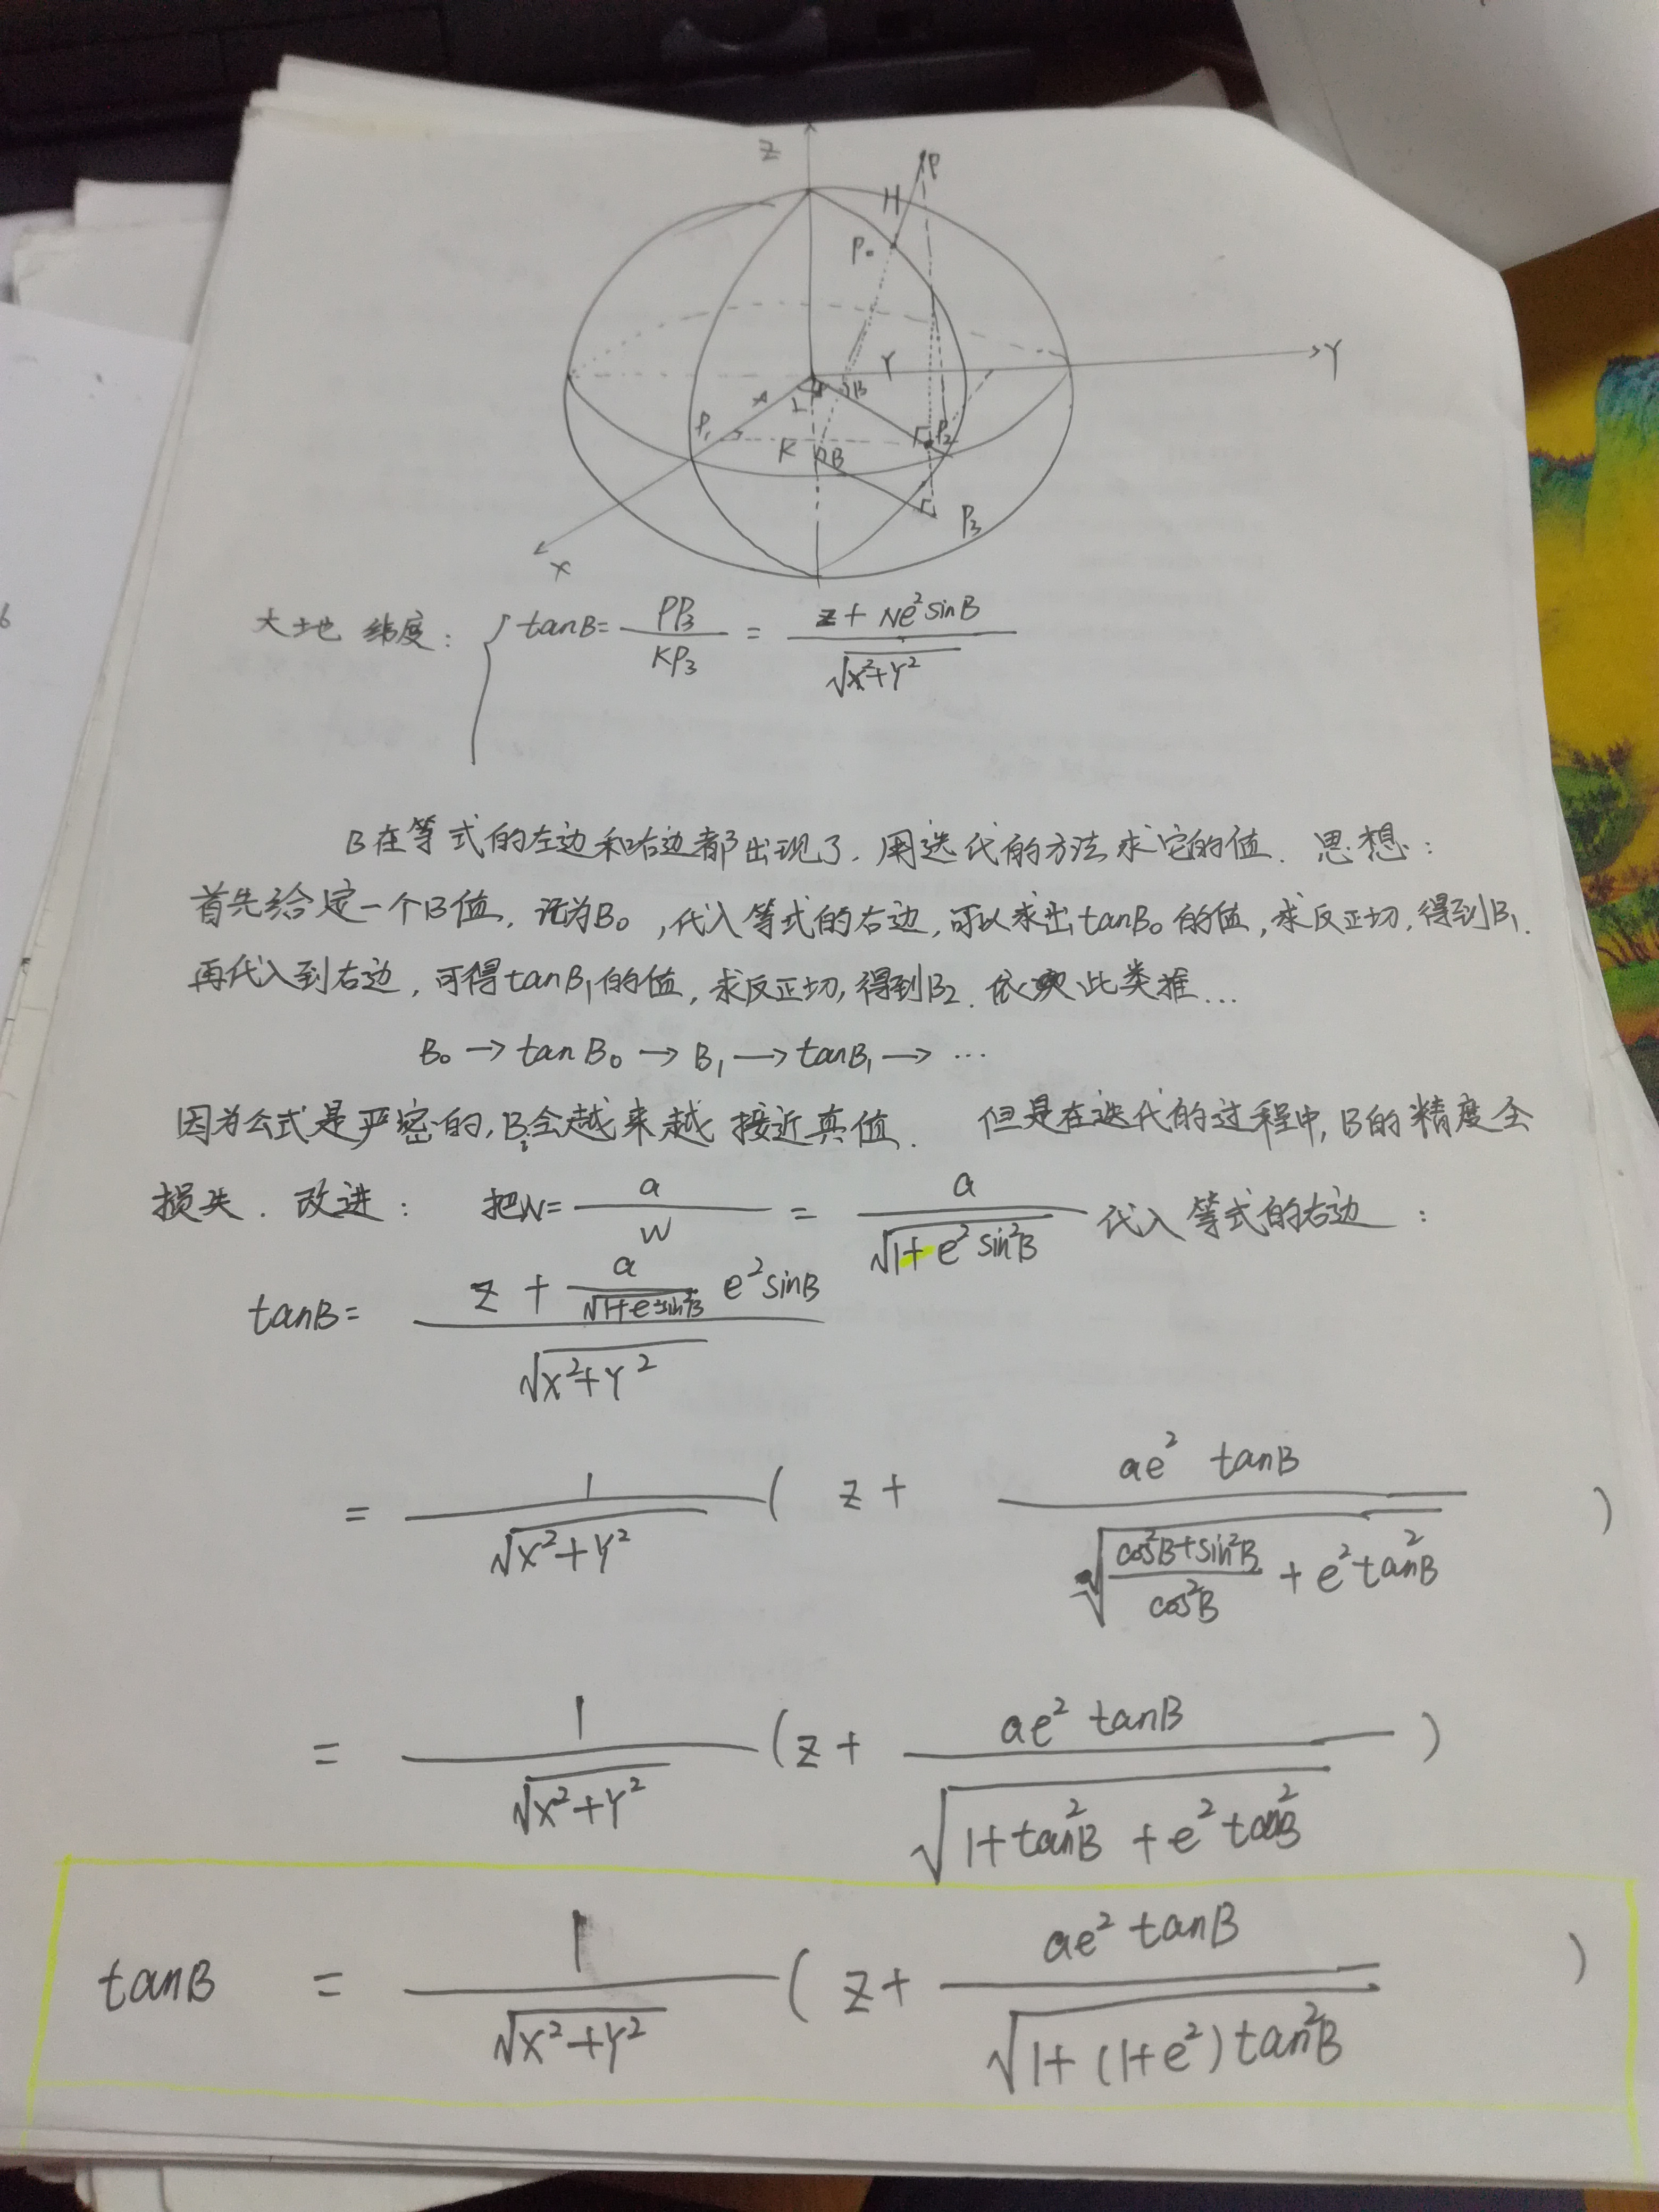 Z
P
H
P₀
Y
Y
X
L
B
P₁
K
B
P₂
P₃
X
大地纬度: { tanB = PP₃ / KP₃ = (Z + Ne²sinB) / √(X²+Y²)
B在等式的左边和右边都出现了. 用迭代的方法求它的值. 思想:
首先给定一个B值, 记为B₀, 代入等式的右边, 可以求出tanB₀的值, 求反正切, 得到B₁.
再代入到右边, 可得tanB₁的值, 求反正切, 得到B₂. 依此类推...
B₀ → tanB₀ → B₁ → tanB₁ → ...
因为公式是严密的, Bᵢ会越来越接近真值. 但是在迭代的过程中, B的精度会
损失. 改进: 把N = a / W = a / √(1+e²sin²B) 代入等式的右边:
tanB = (Z + a / √(1+e²sin²B) e²sinB) / √(X²+Y²)
= 1 / √(X²+Y²) ( Z + ae² tanB / √((cos²B+sin²B) / cos²B + e²tan²B) )
= 1 / √(X²+Y²) ( Z + ae² tanB / √(1+tan²B + e²tan²B) )
tanB = 1 / √(X²+Y²) ( Z + ae² tanB / √(1+(1+e²)tan²B) )